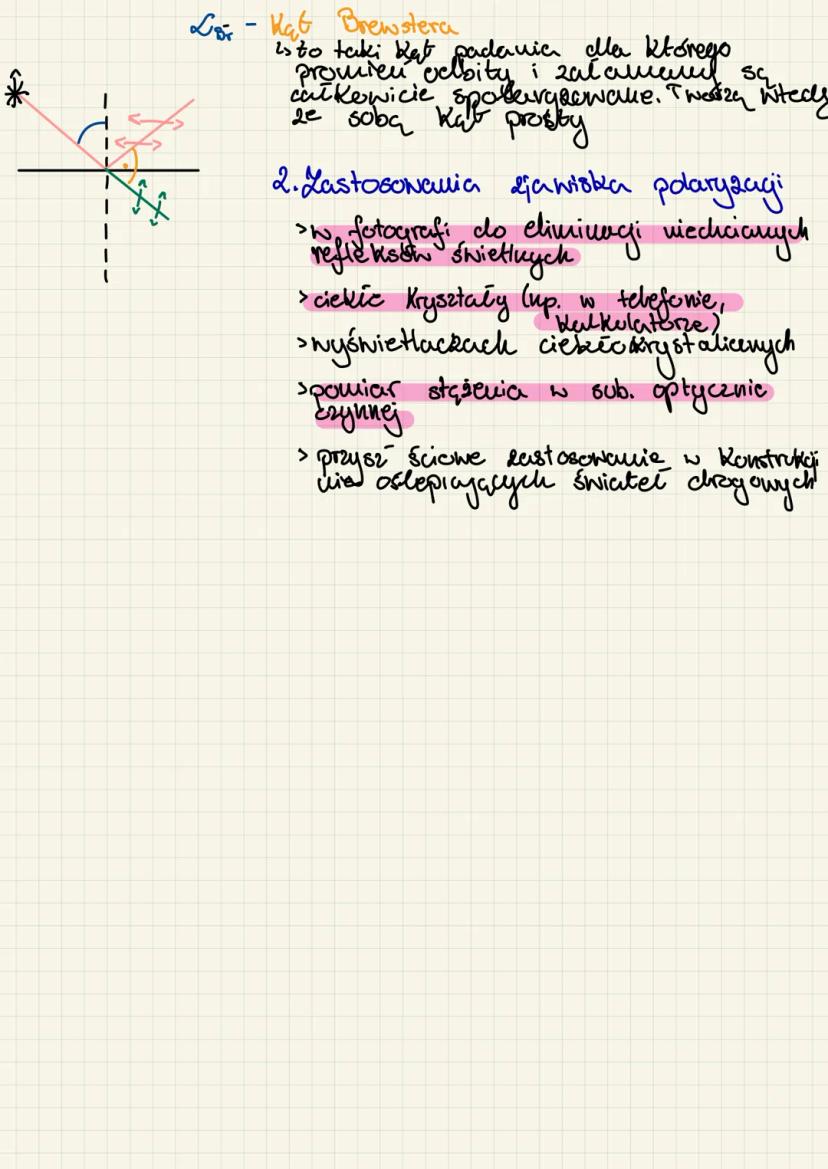 α_Br - Kąt Brewstera
↳ to taki kąt padania dla którego
promień odbity i załamany są
całkowicie spolaryzowane. Tworzą wtedy
ze sobą kąt prosty
2. Zastosowania zjawiska polaryzacji
> w fotografi do eliminacji niechcianych
refleksów świetlnych
> ciekłe kryształy (np. w telefonie,
kalkulatorze)
> wyświetlaczach ciekłokrystalicznych
> pomiar stężenia w sub. optycznie
czynnej
> przyszłościowe zastosowanie w konstrukcji
nie oślepiających świateł drogowych